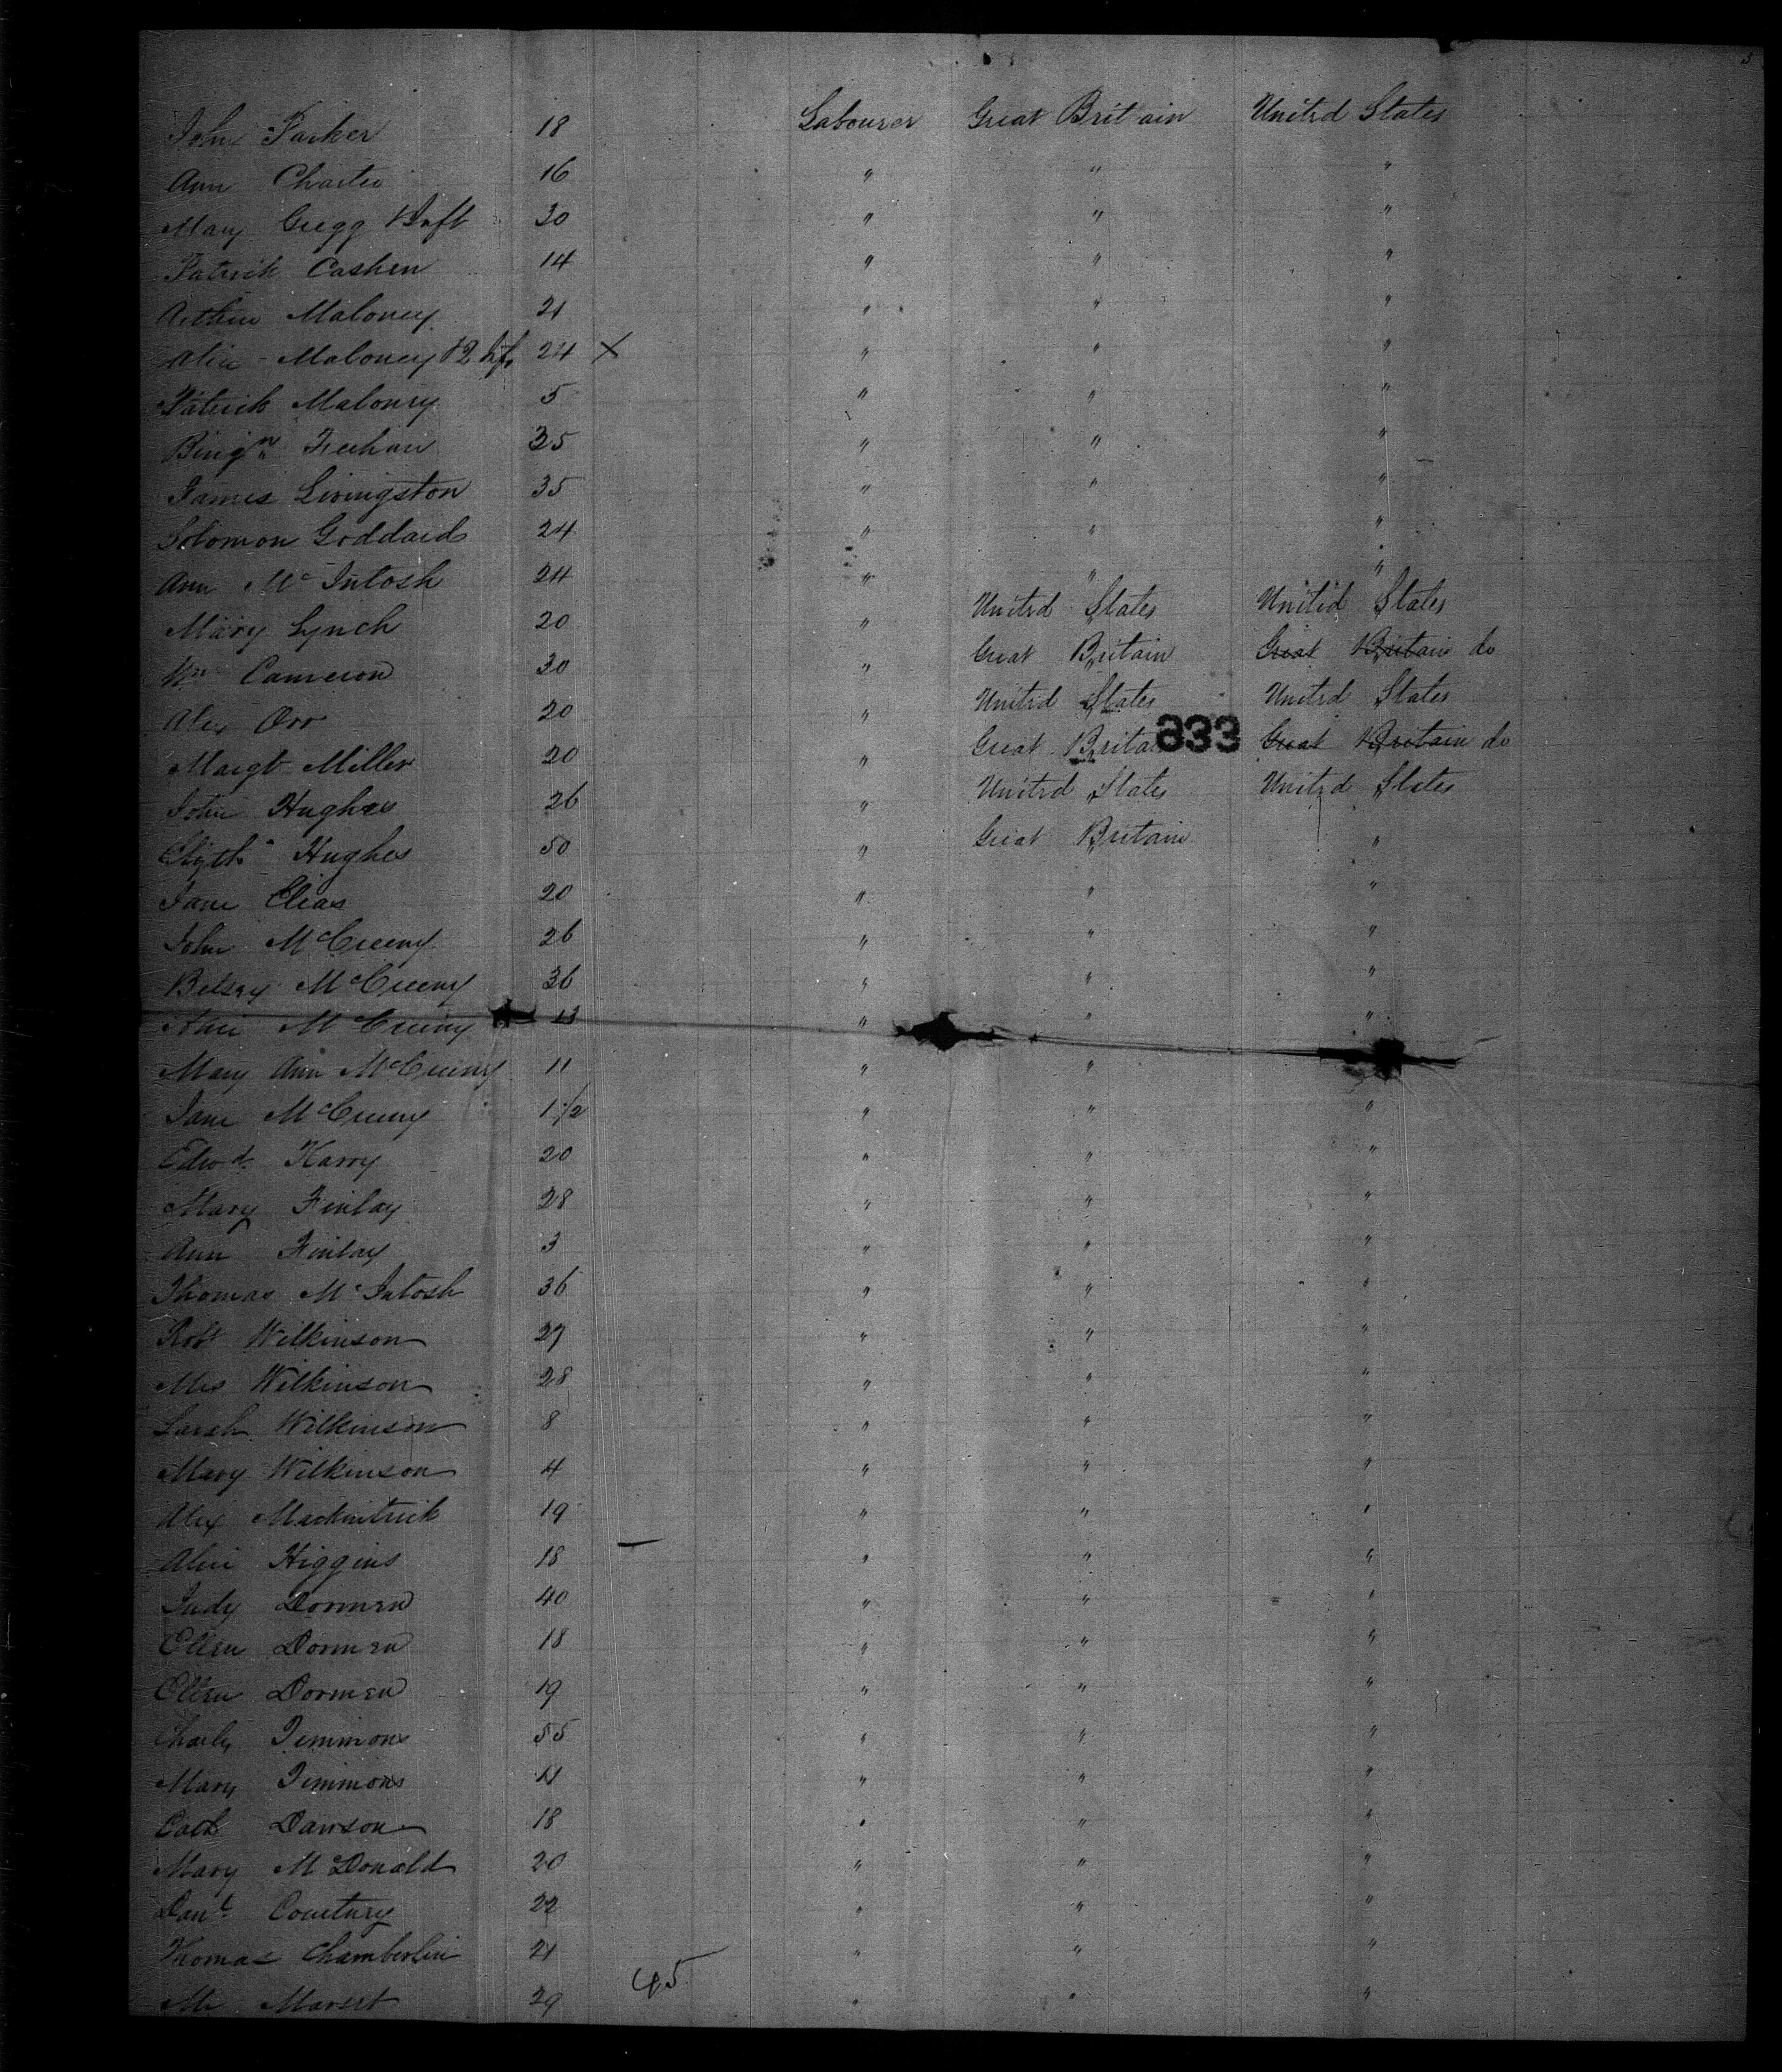 3
John Parker 18 Labourer Great Britain United States
Ann Charters 16 " " "
Mary Gregg 30 " " "
Patrick Cashen 14 " " "
Arthur Maloney 21 " " "
Alice Maloney & 2 Inf. 24 X " " "
Patrick Maloney 5 " " "
Feehan 35 " " "
James Livingston 35 " " "
Solomon Goddard 24 " " "
Ann McIntosh 24 " " "
Mary Lynch 20 " United States United States
Wm Cameron 30 " Great Britain Great Britain do
Alex Orr 20 " United States United States
Margt Miller 20 " Great Britain Great Britain do
833
John Hughes 26 " United States United States
Elizth Hughes 50 " Great Britain "
Jane Elias 20 " " "
John McCreeny 26 " " "
Betsey McCreeny 36 " " "
McCreeny 13 " " "
Mary Ann McCreeny 11 " "
Jane McCreeny 1 1/2 " " "
Edwd Harry 20 " " "
Mary Finlay 28 " " "
Ann Finlay 3 " " "
Thomas McIntosh 36 " " "
Robt Wilkinson 27 " " "
Mrs Wilkinson 28 " " "
Sarah Wilkinson 8 " " "
Mary Wilkinson 4 " " "
Alex Mackintrick 19 " " "
Alice Higgins 18 — " " "
Judy Dormen 40 " " "
Ellen Dormen 18 " " "
Ellen Dormen 19 " " "
Charles Timmons 55 " " "
Mary Timmons 11 " " "
Cath Dawson 18 " " "
Mary McDonald 20 " " "
Danl Courtney 22 " " "
Thomas Chamberlin 21 " " "
45
Mr 29 " " "